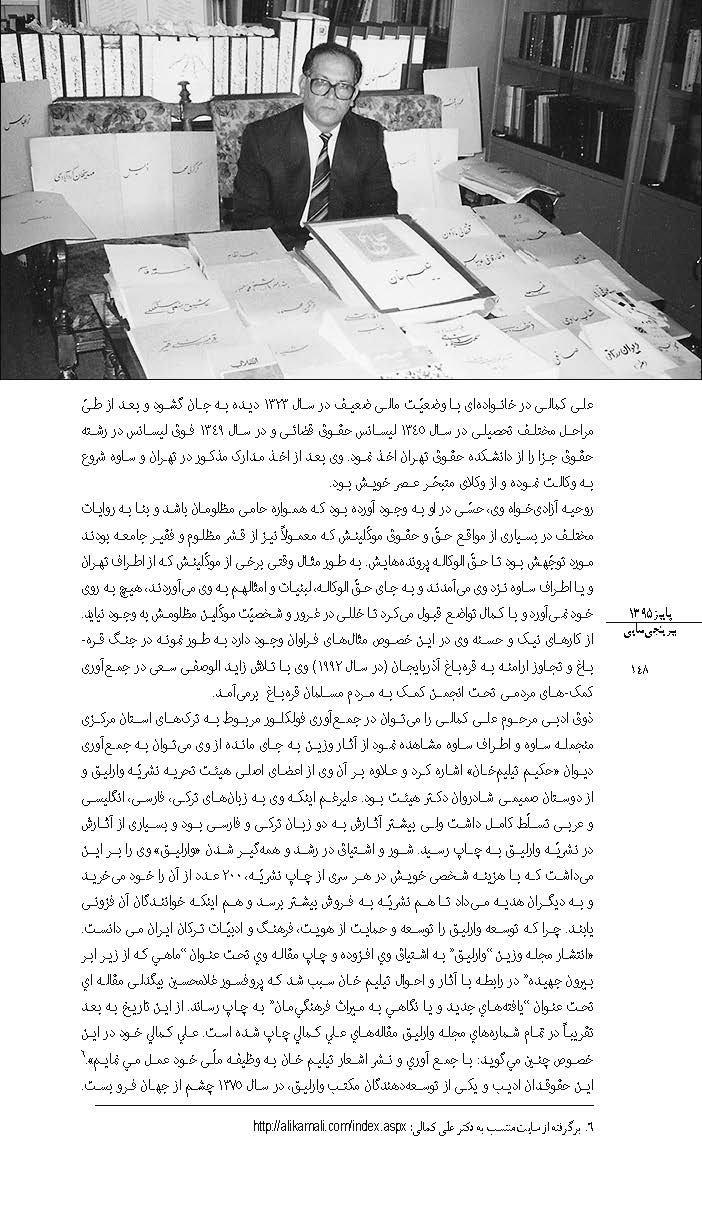 تیلیم خان
علی کمالی در خانواده‌ای با وضعیّت مالی ضعیف در سال ۱۳۲۳ دیده به جان گشود و بعد از طیّ
مراحل مختلف تحصیلی در سال ۱۳٤٥ لیسانس حقوق قضائی و در سال ۱۳٤۹ فوق لیسانس در رشته
حقوق جزا را از دانشکده حقوق تهران اخذ نمود. وی بعد از اخذ مدارک مذکور در تهران و ساوه شروع
به وکالت نموده و از وکلای متبحّر عصر خویش بود.
روحیه آزادی‌خواه وی، حسّی در او به وجود آورده بود که همواره حامی مظلومان باشد و بنا به روایات
مختلف در بسیاری از مواقع حقّ و حقوق موکّلینش که معمولاً نیز از قشر مظلوم و فقیر جامعه بودند
مورد توجّهش بود تا حقّ الوکاله پرونده‌هایش. به طور مثال وقتی برخی از موکّلینش که از اطراف تهران
و یا اطراف ساوه نزد وی می‌آمدند و به جای حقّ الوکاله، لبنیات و امثالهم به وی می‌آوردند، هیچ به روی
خود نمی‌آورد و با کمال تواضع قبول می‌کرد تا خللی در غرور و شخصیّت موکّلین مظلومش به وجود نیاید.
از کارهای نیک و حسنه وی در این خصوص مثال‌های فراوان وجود دارد به طور نمونه در جنگ قره-
باغ و تجاوز ارامنه به قره‌باغ آذربایجان (در سال ۱۹۹۲) وی با تلاش زاید الوصفی سعی در جمع‌آوری
کمک-های مردمی تحت انجمن کمک به مردم مسلمان قره‌باغ برمی‌آمد.
ذوق ادبی مرحوم علی کمالی را می‌توان در جمع‌آوری فولکلور مربوط به ترک‌های استان مرکزی
منجمله ساوه و اطراف ساوه مشاهده نمود از آثار وزین به جای مانده از وی می‌توان به جمع‌آوری
دیوان «حکیم تیلیم‌خان» اشاره کرد و علاوه بر آن وی از اعضای اصلی هیئت تحریه نشریّه وارلیق و
از دوستان صمیمی شادروان دکتر هیئت بود. علیرغم اینکه وی به زبان‌های ترکی، فارسی، انگلیسی
و عربی تسلّط کامل داشت ولی بیشتر آثارش به دو زبان ترکی و فارسی بود و بسیاری از آثارش
در نشریّه وارلیق به چاپ رسید. شور و اشتیاق در رشد و همه‌گیر شدن «وارلیق» وی را بر این
می‌داشت که با هزینه شخصی خویش در هر سری از چاپ نشریّه، ۲۰۰ عدد از آن را خود می‌خرید
و به دیگران هدیه می‌داد تا هم نشریّه به فروش بیشتر برسد و هم اینکه خوانندگان آن فزونی
یابند. چرا که توسعه وارلیق را توسعه و حمایت از هویت، فرهنگ و ادبیّات ترکان ایران می دانست.
«انتشار مجله وزین "وارلیق" به اشتیاق وي افزوده و چاپ مقاله وي تحت عنوان "ماهي که از زیر ابر
بیرون جهیده" در رابطه با آثار و احوال تیلیم خان سبب شد که پروفسور غلامحسین بیگدلی مقاله اي
تحت عنوان "یافته‌هاي جدید و یا نگاهي به میراث فرهنگي‌مان" به چاپ رساند. از این تاریخ به بعد
تقریباً در تمام شماره‌هاي مجله وارلیق مقاله‌هاي علي کمالي چاپ شده است. علي کمالي خود در این
خصوص چنین مي‌گوید: با جمع آوري و نشر اشعار تیلیم خان به وظیفه ملّی خود عمل مي نمایم».٦
این حقوقدان ادیب و یکی از توسعه‌دهندگان مکتب وارلیق، در سال ۱۳۷٥ چشم از جهان فرو بست.
پاییز ۱۳۹۵
۱٤۸
٦. برگرفته از سایت منتسب به دکتر علی کمالی: http://alikamali.com/index.aspx